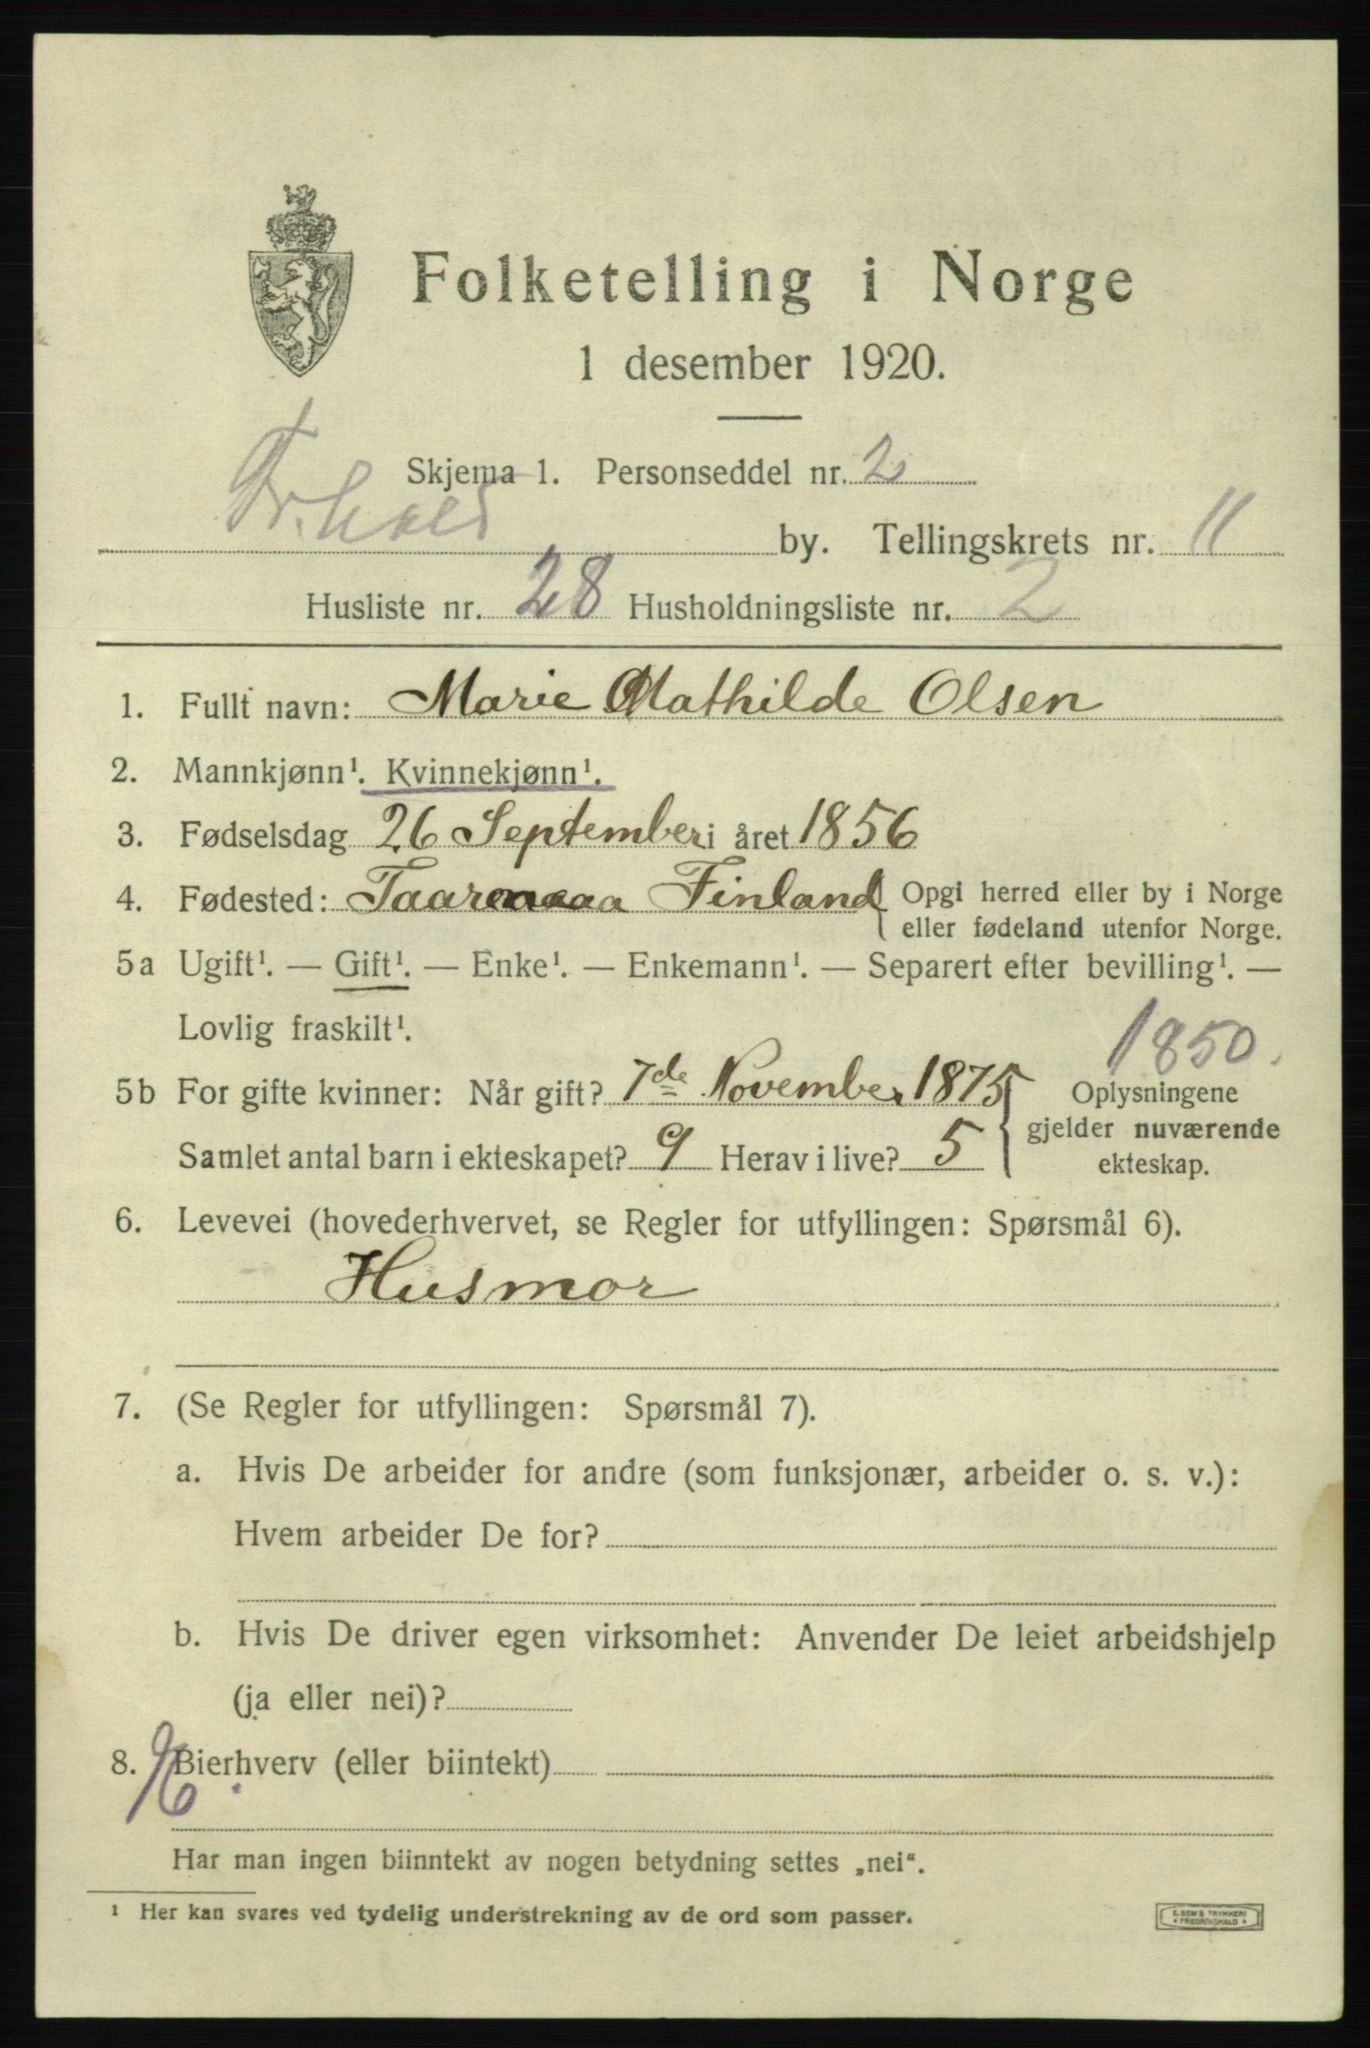 Folketelling i Norge
1 desember 1920.
Skjema 1. Personseddel nr. 2
Fr.hald by. Tellingskrets nr. 11
Husliste nr. 28 Husholdningsliste nr. 2
1. Fullt navn: Marie Mathilde Olsen
2. Mannkjønn¹. Kvinnekjønn¹.
3. Fødselsdag 26 September i året 1856
4. Fødested: Finland { Opgi herred eller by i Norge
eller fødeland utenfor Norge.
5a Ugift¹. — Gift¹. — Enke¹. — Enkemann¹. — Separert efter bevilling¹. —
Lovlig fraskilt¹.
1850.
5b For gifte kvinner: Når gift? 7de November 1875 { Oplysningene
gjelder nuværende
Samlet antal barn i ekteskapet? 9 Herav i live? 5 ekteskap.
6. Levevei (hovederhvervet, se Regler for utfyllingen: Spørsmål 6).
Husmor
7. (Se Regler for utfyllingen: Spørsmål 7).
a. Hvis De arbeider for andre (som funksjonær, arbeider o. s. v.):
Hvem arbeider De for?
b. Hvis De driver egen virksomhet: Anvender De leiet arbeidshjelp
(ja eller nei)?
8. Bierhverv (eller biintekt)
Har man ingen biinntekt av nogen betydning settes „nei“.
¹ Her kan svares ved tydelig understrekning av de ord som passer.
E. SEM'S TRYKKERI
* FREDRIKSHALD *